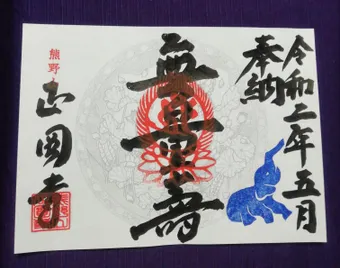 奉納
令和二年五月
無量壽
熊野
正圓寺